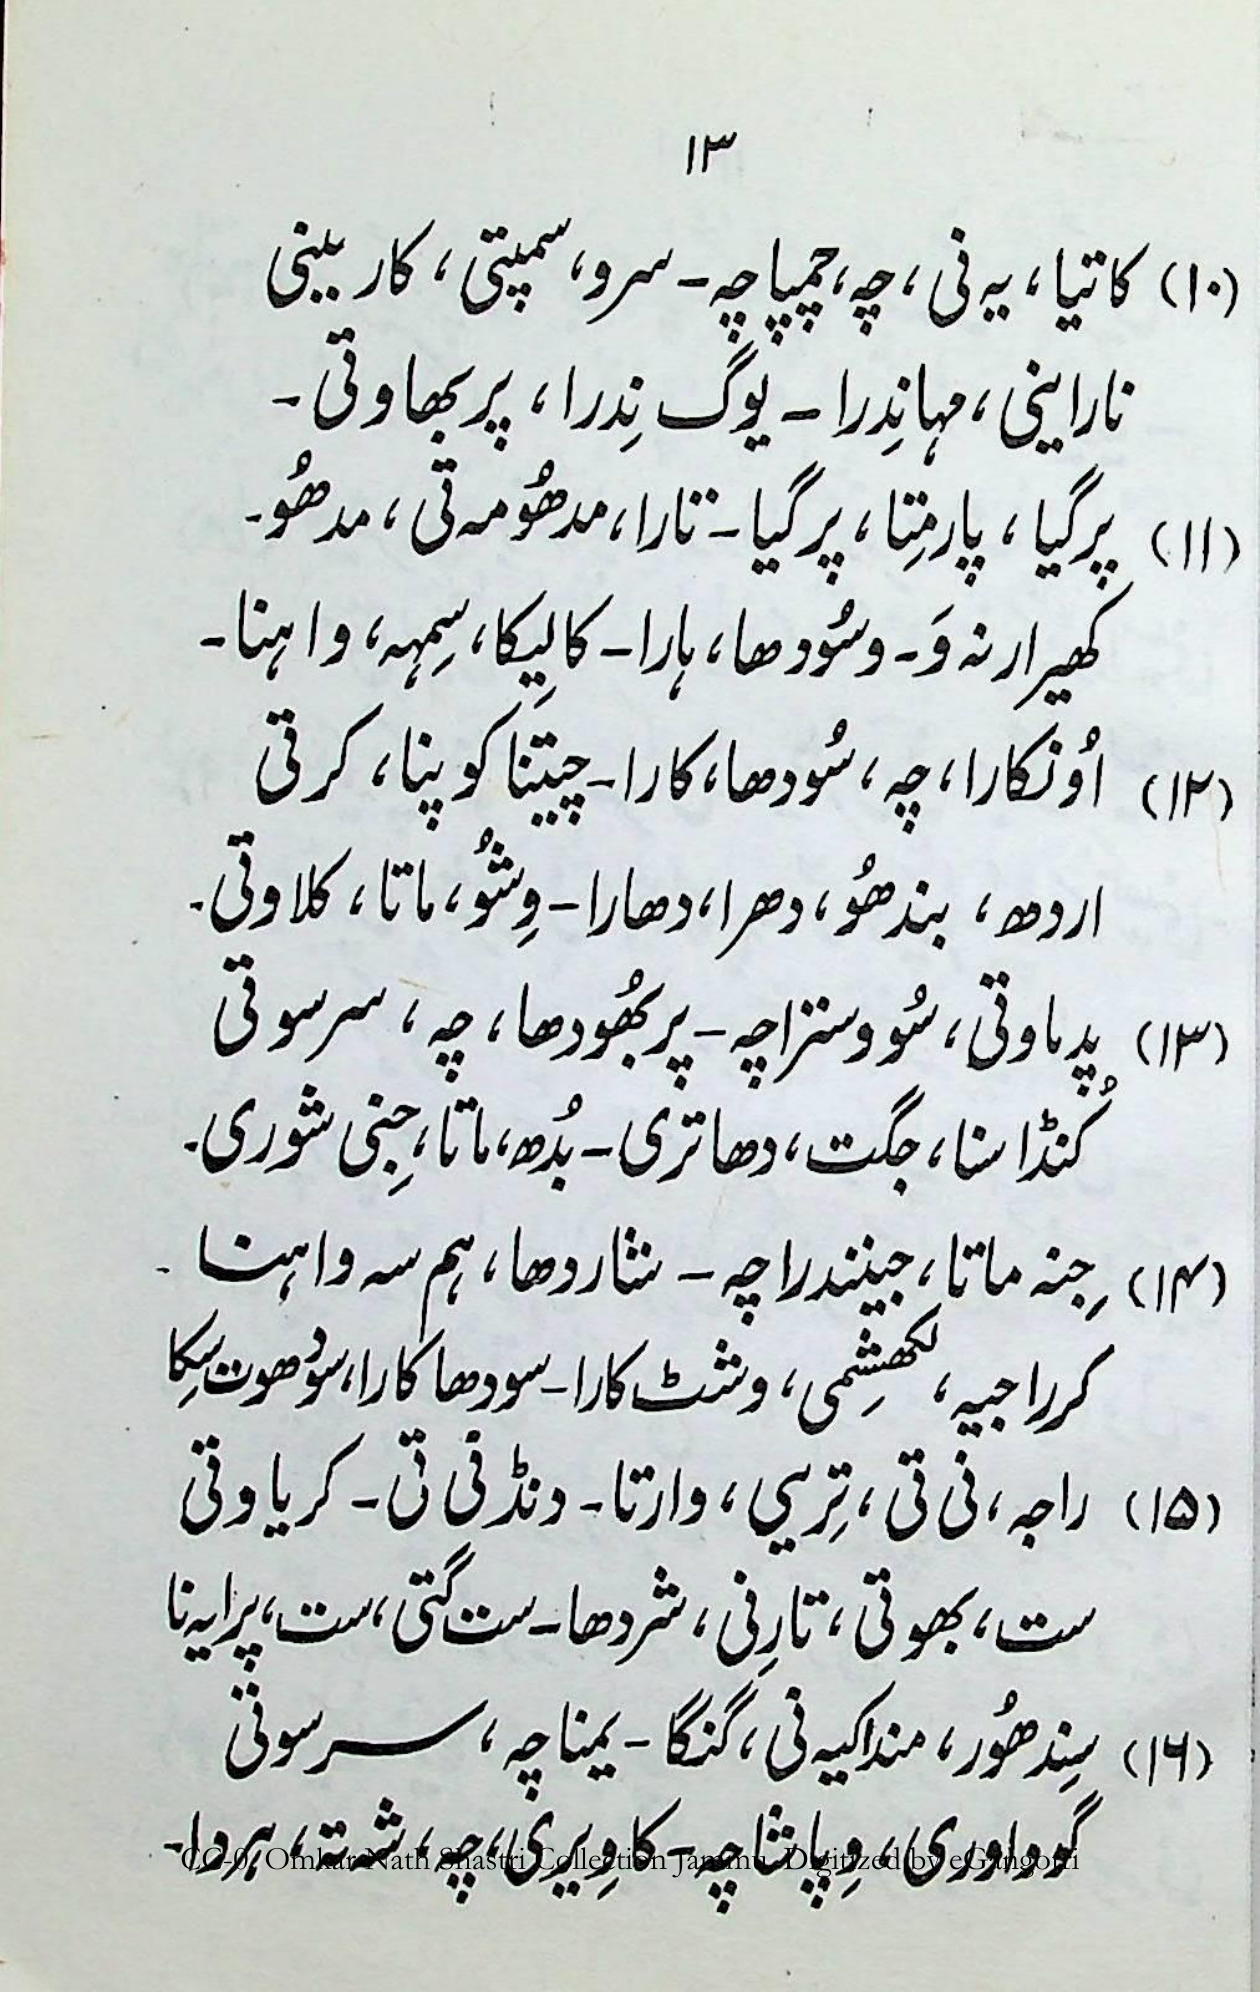 ۱۳
(۱۰) کاتیا، یہ نی، چہ، چمپاچہ۔ سرو، سمپتی، کار یینی
نارایینی، مہانِدرا۔ یوگ نِدرا، پربھاوتی۔
(۱۱) پرگیا، پارمِتا، پرگیا۔ تارا، مدھُومہ تی، مدھُو۔
کھیرارنہ وَ۔ وسُودھا، ہارا۔ کالِیکا، سِمہہ، واہنا۔
(۱۲) اُونکارا، چہ، سُودھا، کارا۔ چیتنا کوپنا، کرتی
اردھ، بندھُو، دھرا، دھارا۔ وِشُو، ماتا، کلاوتی۔
(۱۳) پدماوتی، سُووستراچہ۔ پربھُودھا، چہ، سرسوتی
کُنڈاسنا، جگت، دھاتری۔ بُدھ، ماتا، جِنی شوری۔
(۱۴) جِنہ ماتا، جینندراچہ۔ شاردھا، ہم سہ واہنا۔
کرراجیہ، لکھِشمی، وشٹ کارا۔ سودھا کارا، سوُدھوت سِکا
(۱۵) راجہ، نی تی، تِریی، وارتا۔ دنڈنی تی۔ کریاوتی
ست، بھوتی، تارِنی، شردھا۔ ست گتی، ست، پرایہ نا
(۱۶) سِندھُور، منداکیہ نی، گنگا۔ یمناچہ، سرسوتی
گوداوری، وِپاشاچہ۔ کاوِیری، چہ، شتہ، ہردا۔
CC-0. Omkar Nath Shastri Collection Jammu. Digitized by eGangotri